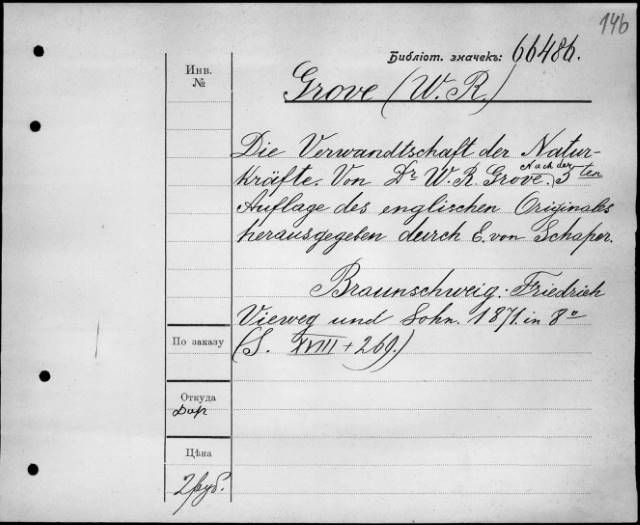 146
Библіот. значекъ: 66486.
Инв.
№
Grove (W. R.)
Die Verwandtschaft der Natur-
kräfte. Von Dr W. R. Grove. Nach der 5ten
Auflage des englischen Originales
herausgegeben durch E. von Schaper.
Braunschweig. Friedrich
Vieweg und Sohn. 1871. in 8°
По заказу
(S. XVIII + 269.)
Откуда
Дар
Цѣна
2 руб.